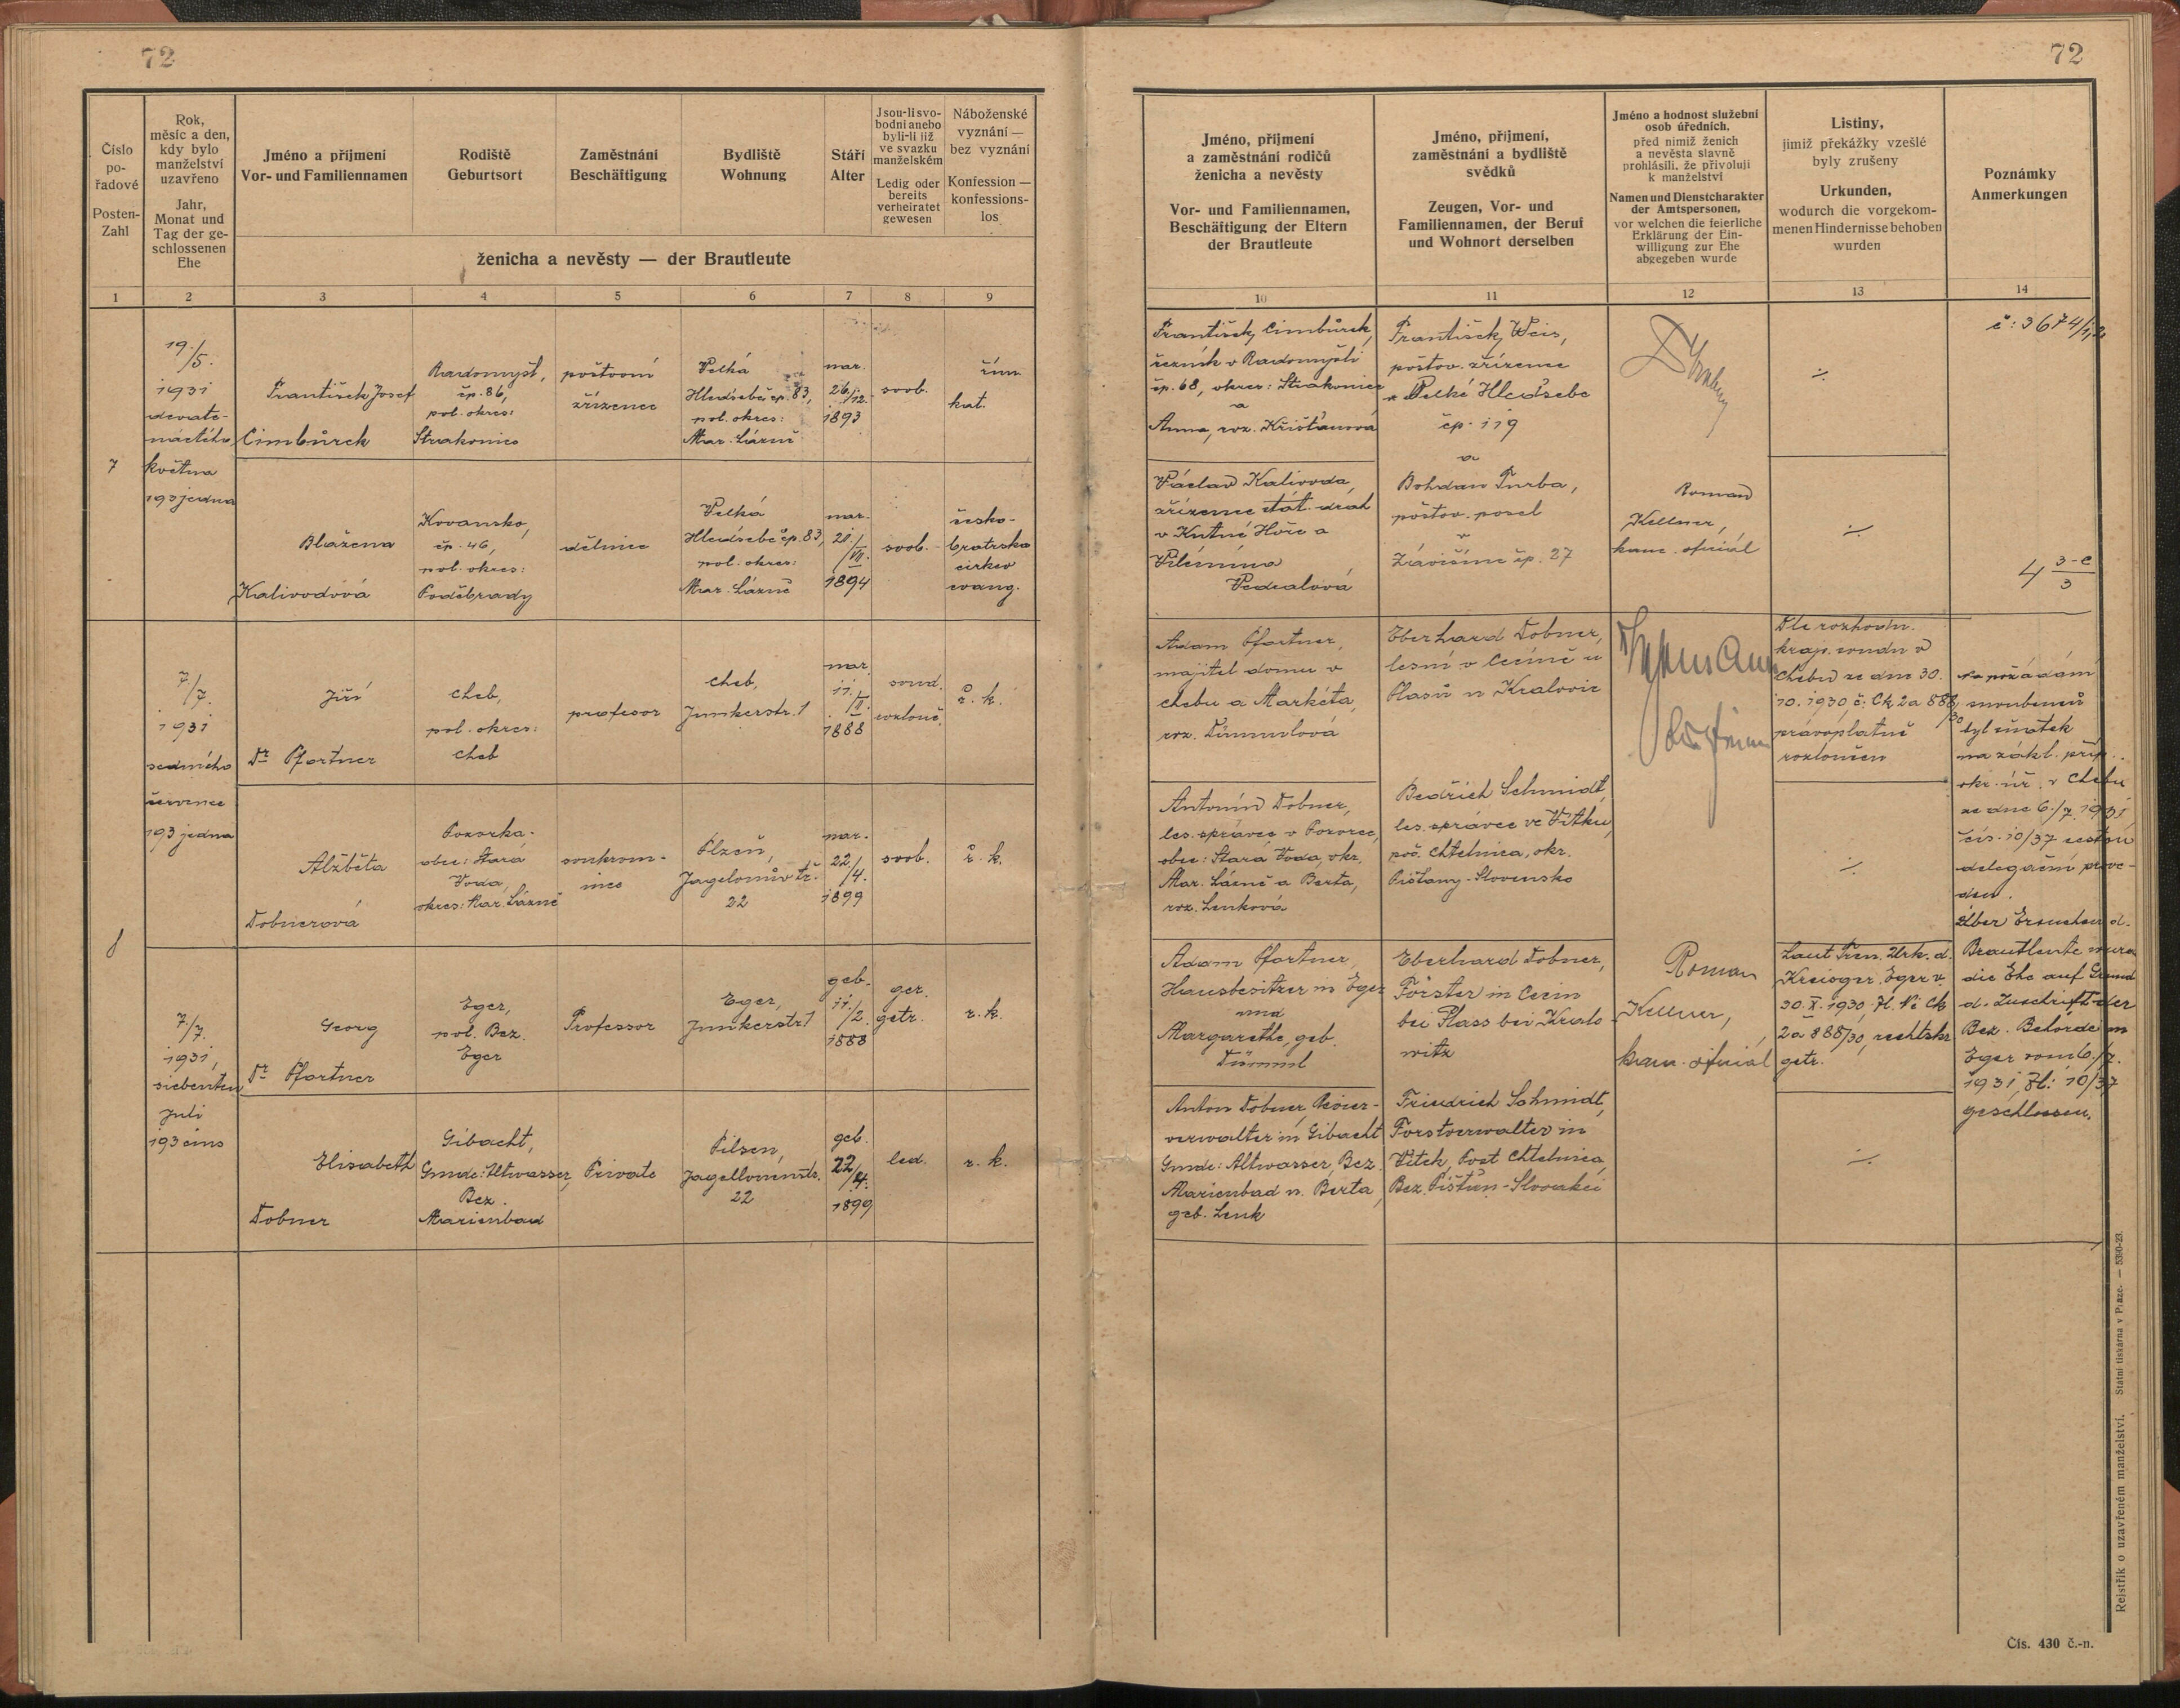 72
72
Číslo
po-
řadové
Posten-
Zahl
Rok,
měsíc a den,
kdy bylo
manželství
uzavřeno
Jahr,
Monat und
Tag der ge-
schlossenen
Ehe
Jméno a příjmení
Vor- und Familiennamen
Rodiště
Geburtsort
Zaměstnání
Beschäftigung
Bydliště
Wohnung
Stáří
Alter
Jsou-li svo-
bodni anebo
byli-li již
ve svazku
manželském
Ledig oder
bereits
verheiratet
gewesen
Náboženské
vyznání —
bez vyznání
Konfession —
konfessions-
los
ženicha a nevěsty — der Brautleute
Jméno, příjmení
a zaměstnání rodičů
ženicha a nevěsty
Vor- und Familiennamen,
Beschäftigung der Eltern
der Brautleute
Jméno, příjmení,
zaměstnání a bydliště
svědků
Zeugen, Vor- und
Familiennamen, der Beruf
und Wohnort derselben
Jméno a hodnost služební
osob úředních,
před nimiž ženich
a nevěsta slavně
prohlásili, že přivolují
k manželství
Namen und Dienstcharakter
der Amtspersonen,
vor welchen die feierliche
Erklärung der Ein-
willigung zur Ehe
abgegeben wurde
Listiny,
jimiž překážky vzešlé
byly zrušeny
Urkunden,
wodurch die vorgekom-
menen Hindernisse behoben
wurden
Poznámky
Anmerkungen
1 2 3 4 5 6 7 8 9 10 11 12 13 14
7
19./5.
1931
devate-
náctého
května
193jedna
František Josef
Cimbůrek
Radomyšl,
čp. 86,
pol. okres:
Strakonice
poštovní
zřízenec
Velká
Hleďsebe čp. 83,
pol. okres:
Mar. Lázně
nar.
26./12.
1893
svob.
řím.
kat.
František Cimbůrek,
řezník v Radomyšli
čp. 68, okres: Strakonice
a
Anna, roz. Křišťanová
František Weis,
poštov. zřízenec
v Velké Hleďsebe
čp. 119
a
Bohdan Turba,
poštov. posel
v
Závišíně čp. 27
÷
č: 3674/
Blažena
Kalivodová
Kovansko,
čp. 46,
pol. okres:
Poděbrady
dělnice
Velká
Hleďsebe čp. 83,
pol. okres:
Mar. Lázně
nar.
20./VII.
1894
svob.
česko-
bratrská
církev
evang.
Václav Kalivoda,
zřízenec stát. drah
v Kutné Hoře a
Vilémína
Roman
Kellner,
kanc. oficiál
÷
4 3-c/3
8
7/7.
1931
sedmého
července
193jedna
Jiří
Dr Pfortner
Cheb,
pol. okres:
Cheb
profesor
Cheb,
Junkerstr. 1
nar.
11./II.
1888
soud.
rozlouč.
ř. k.
Adam Pfortner,
majitel domu v
Chebu a Markéta,
roz. Dümmlová
Eberhard Dobner,
lesní v Ceríně u
Plasů u Kralovic
Dle rozhodn.
kraj. soudu v
Chebu ze dne 30.
10. 1930, č: Ck 2a 888/30
právoplatně
rozloučen
Na požádání
snoubenců
byl sňatek
na zákl. příp.
okr. úř. v Chebu
ze dne 6./7. 1931,
čís. 10/37 cestou
delegační prove-
den.
Alžběta
Dobnerová
Pozorka-
obec: Stará
Voda,
okres: Mar. Lázně
soukrom-
nice
Plzeň,
Jagelonův tř.
22
nar.
22/4.
1899
svob.
ř. k.
Antonín Dobner,
les. správce v Pozorce,
obec: Stará Voda, okr.
Mar. Lázně a Berta,
roz. Lenková
Bedřich Schmidt,
les. správce ve Vítku,
poš. Chtelnica, okr.
Pišťany-Slovensko
÷
7/7.
1931,
siebenten
Juli
193eins
Georg
Dr Pfortner
Eger,
pol. Bez.
Eger
Professor
Eger,
Junkerstr. 1
geb.
11./2.
1888
ger.
getr.
r. k.
Adam Pfortner,
Hausbesitzer in Eger
und
Margarethe, geb.
Dümml
Eberhard Dobner,
Förster in Cerin
bei Plass bei Kralo-
witz
Roman
Kellner,
kanc. oficiál
Laut Tren. Urk. d.
Kreisger. Eger v.
30. X. 1930, Zl. Nč Ck
2a 888/30, rechtskr.
getr.
Über Ersuchen d.
Brautleute wurde
die Ehe auf Grund
d. Zuschrift der
Bez. Behörde in
Eger vom 6./7.
1931, Zl: 10/37
geschlossen.
Elisabeth
Dobner
Gibacht,
Gmde: Altwasser,
Bez.
Marienbad
Private
Pilsen,
Jagellonenstr.
22
geb.
22/4.
1899
led.
r. k.
Anton Dobner, Revier-
verwalter in Gibacht
Gmde: Altwasser, Bez.
Marienbad u. Berta,
geb. Lenk
Friedrich Schmidt,
Forstverwalter in
Vitek, Post Chtelnica,
Bez. Pištan-Slovakei
÷
Rejstřík o uzavřeném manželství. Státní tiskárna v Praze. — 5390-23.
Čís. 430 č.-n.